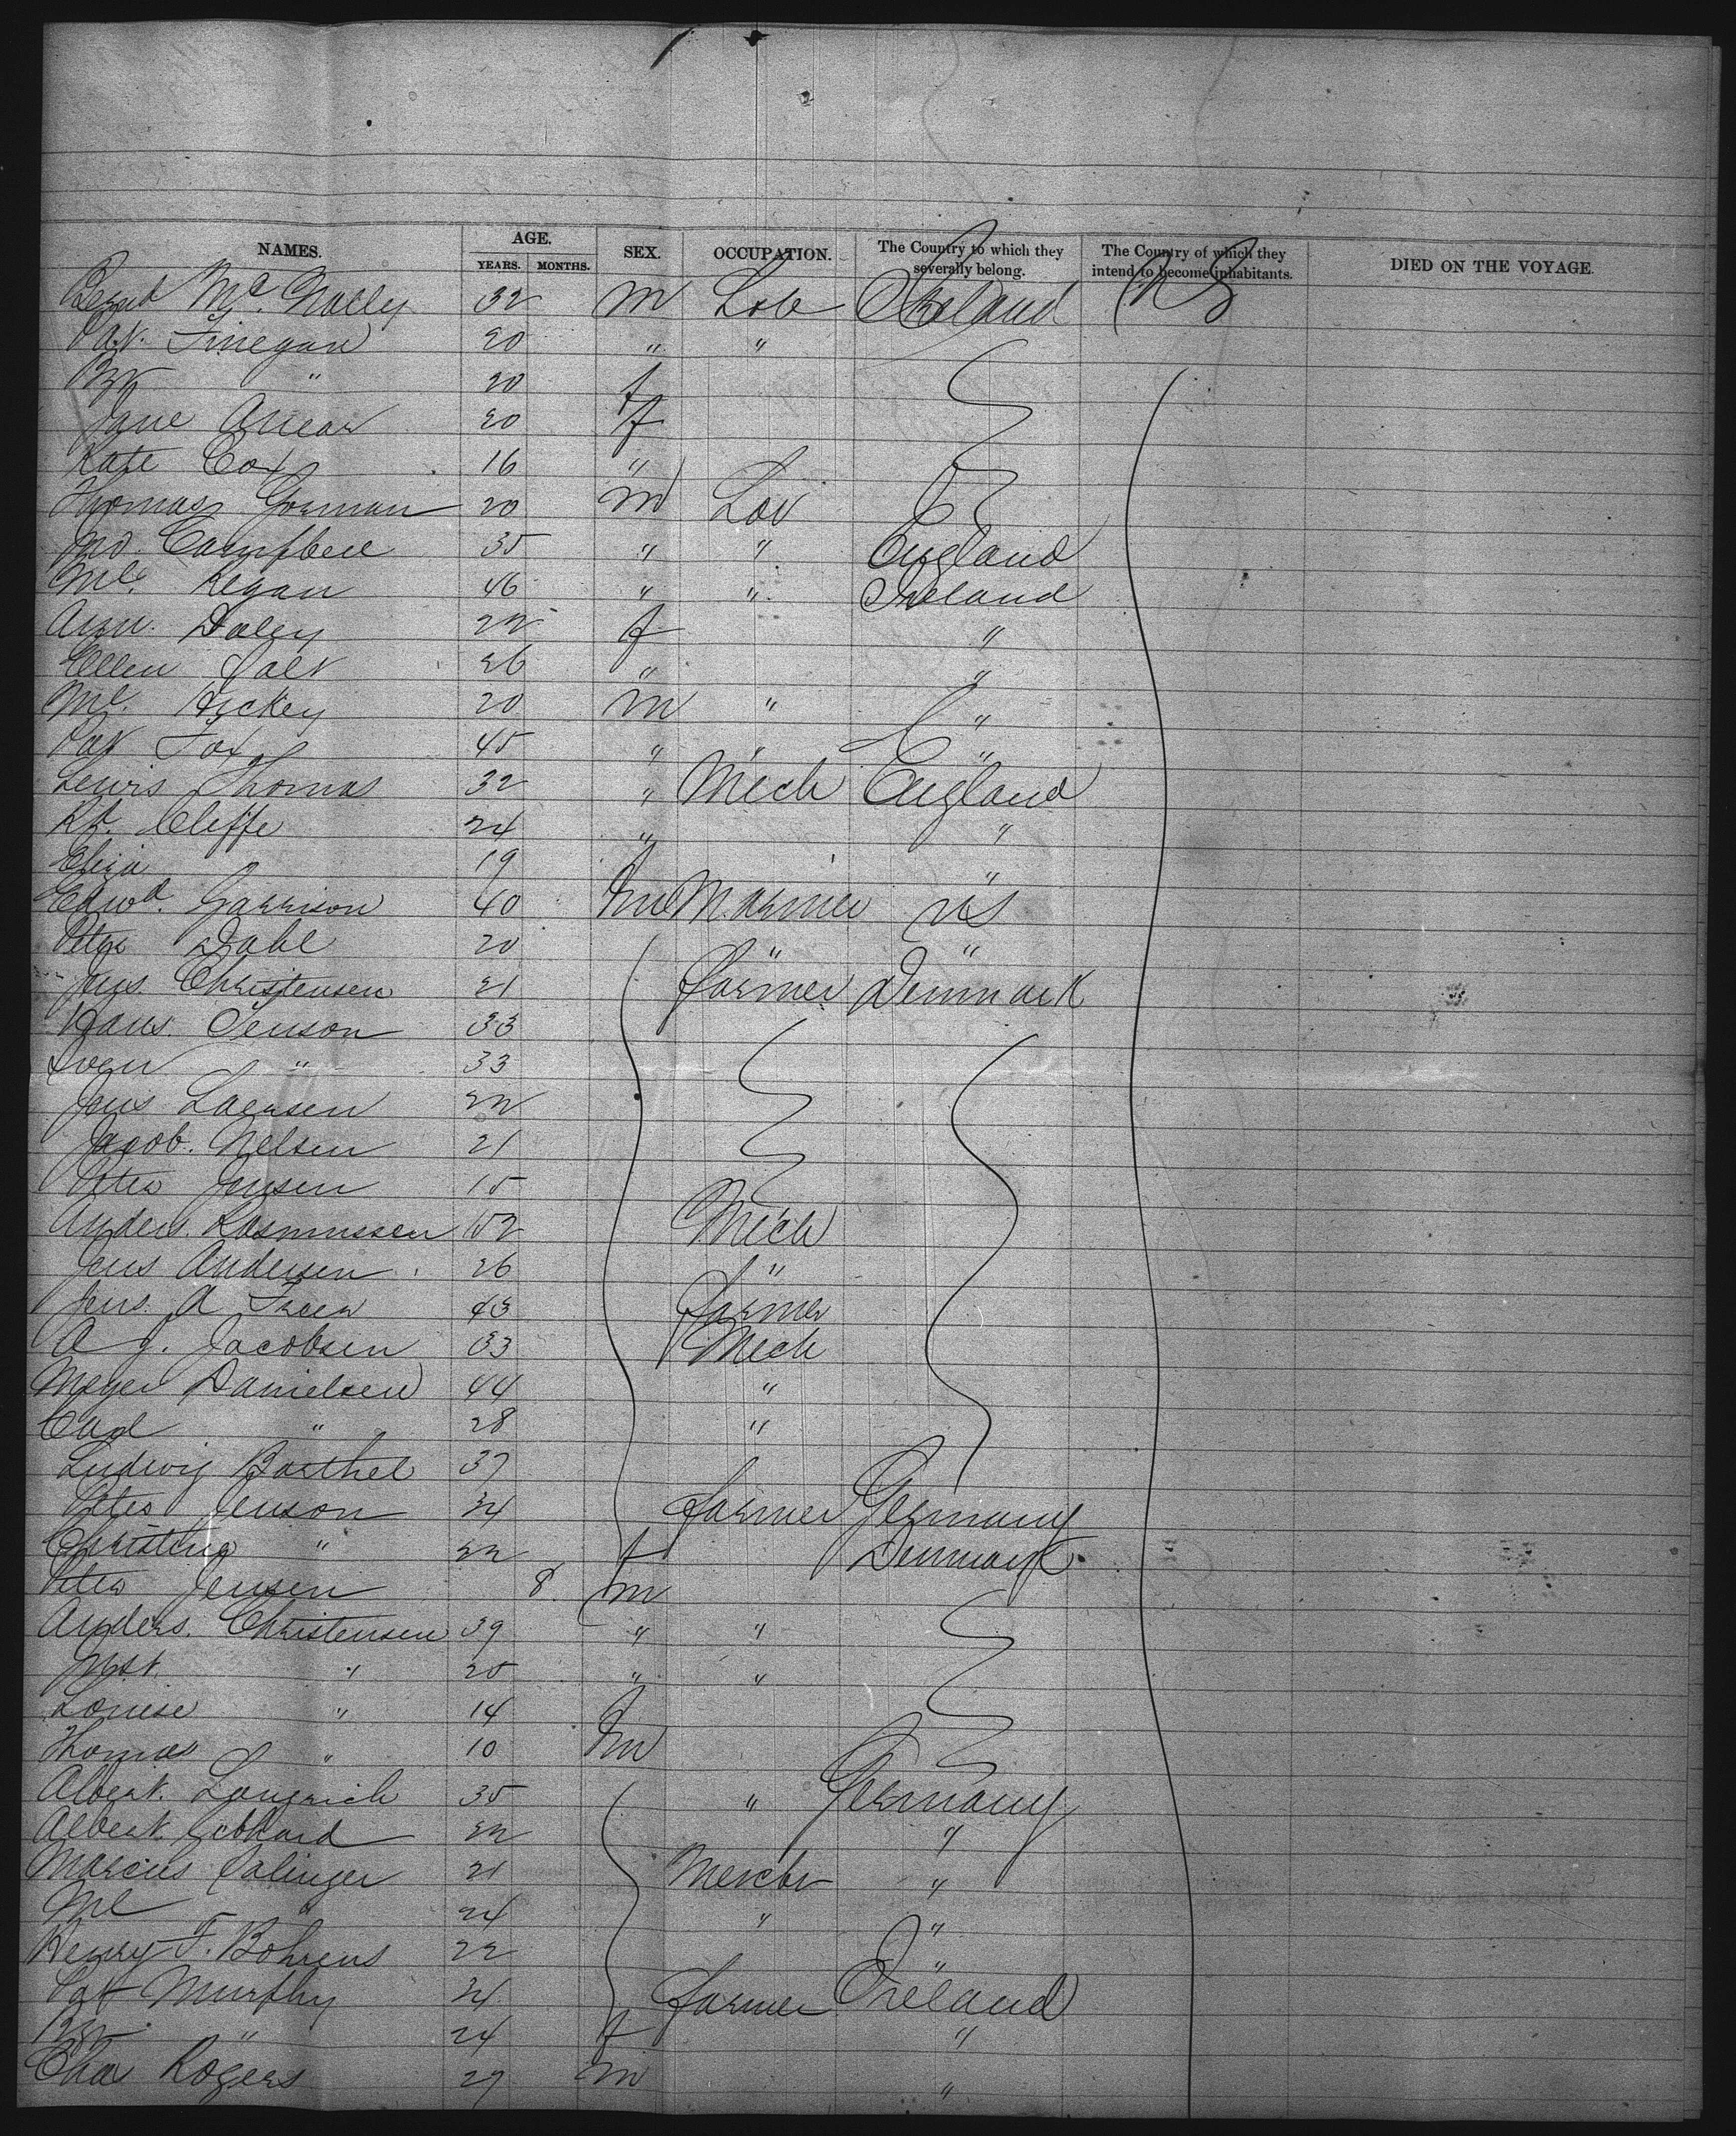 NAMES. AGE. SEX. OCCUPATION. The Country to which they severally belong. The Country of which they intend to become inhabitants. DIED ON THE VOYAGE.
YEARS. MONTHS.
Mc. Nally 32 m Lab Ireland US
Pat. Finegan 20 " "
" 20 f
Jane 20 f
Kate Cox 16 "
Thomas Gorman 20 m Lab
Campbell 35 " " England
Ml. Regan 46 " " Ireland
Ann. Daley 22 f "
Ellen 26 " "
Ml. Hickey 20 m " "
Pat Fox 45 " " "
Lewis Thomas 32 " Mech England
Rd. Cliffe 24 " "
Eliza 19 f "
Edwd. Garrison 40 m Mariner US
Peter Dahl 20 " "
Jens. Christensen 21 farmer Denmark
Hans. Jenson 33
" 33
Jens Laersen 22
Jacob. Nelsen 21
Peter Jensen 15
Anders. Rasmussen 52 Mech
Jens Andersen 26 "
Jens. A 43 farmer
A J. Jacobsen 33 Mech
Meyer Danielsen 44 "
Carl " 28 "
Ludwig Barthel 37
Peter Jenson 24 farmer Germany
Christine " 22 f Denmark
Peter Jensen 8 m
Anders. Christensen 39 " "
" 20 " "
Louise " 14 f
Thomas " 10 m
Albert. 35 " Germany
Albert. Gebhard 22 "
Marcus Salinger 21 Mercht "
Ml " 24 " "
Henry F. Bohrens 22 "
Pat Murphy 24 farmer Ireland
" 24 f "
Chas Rogers 29 m "